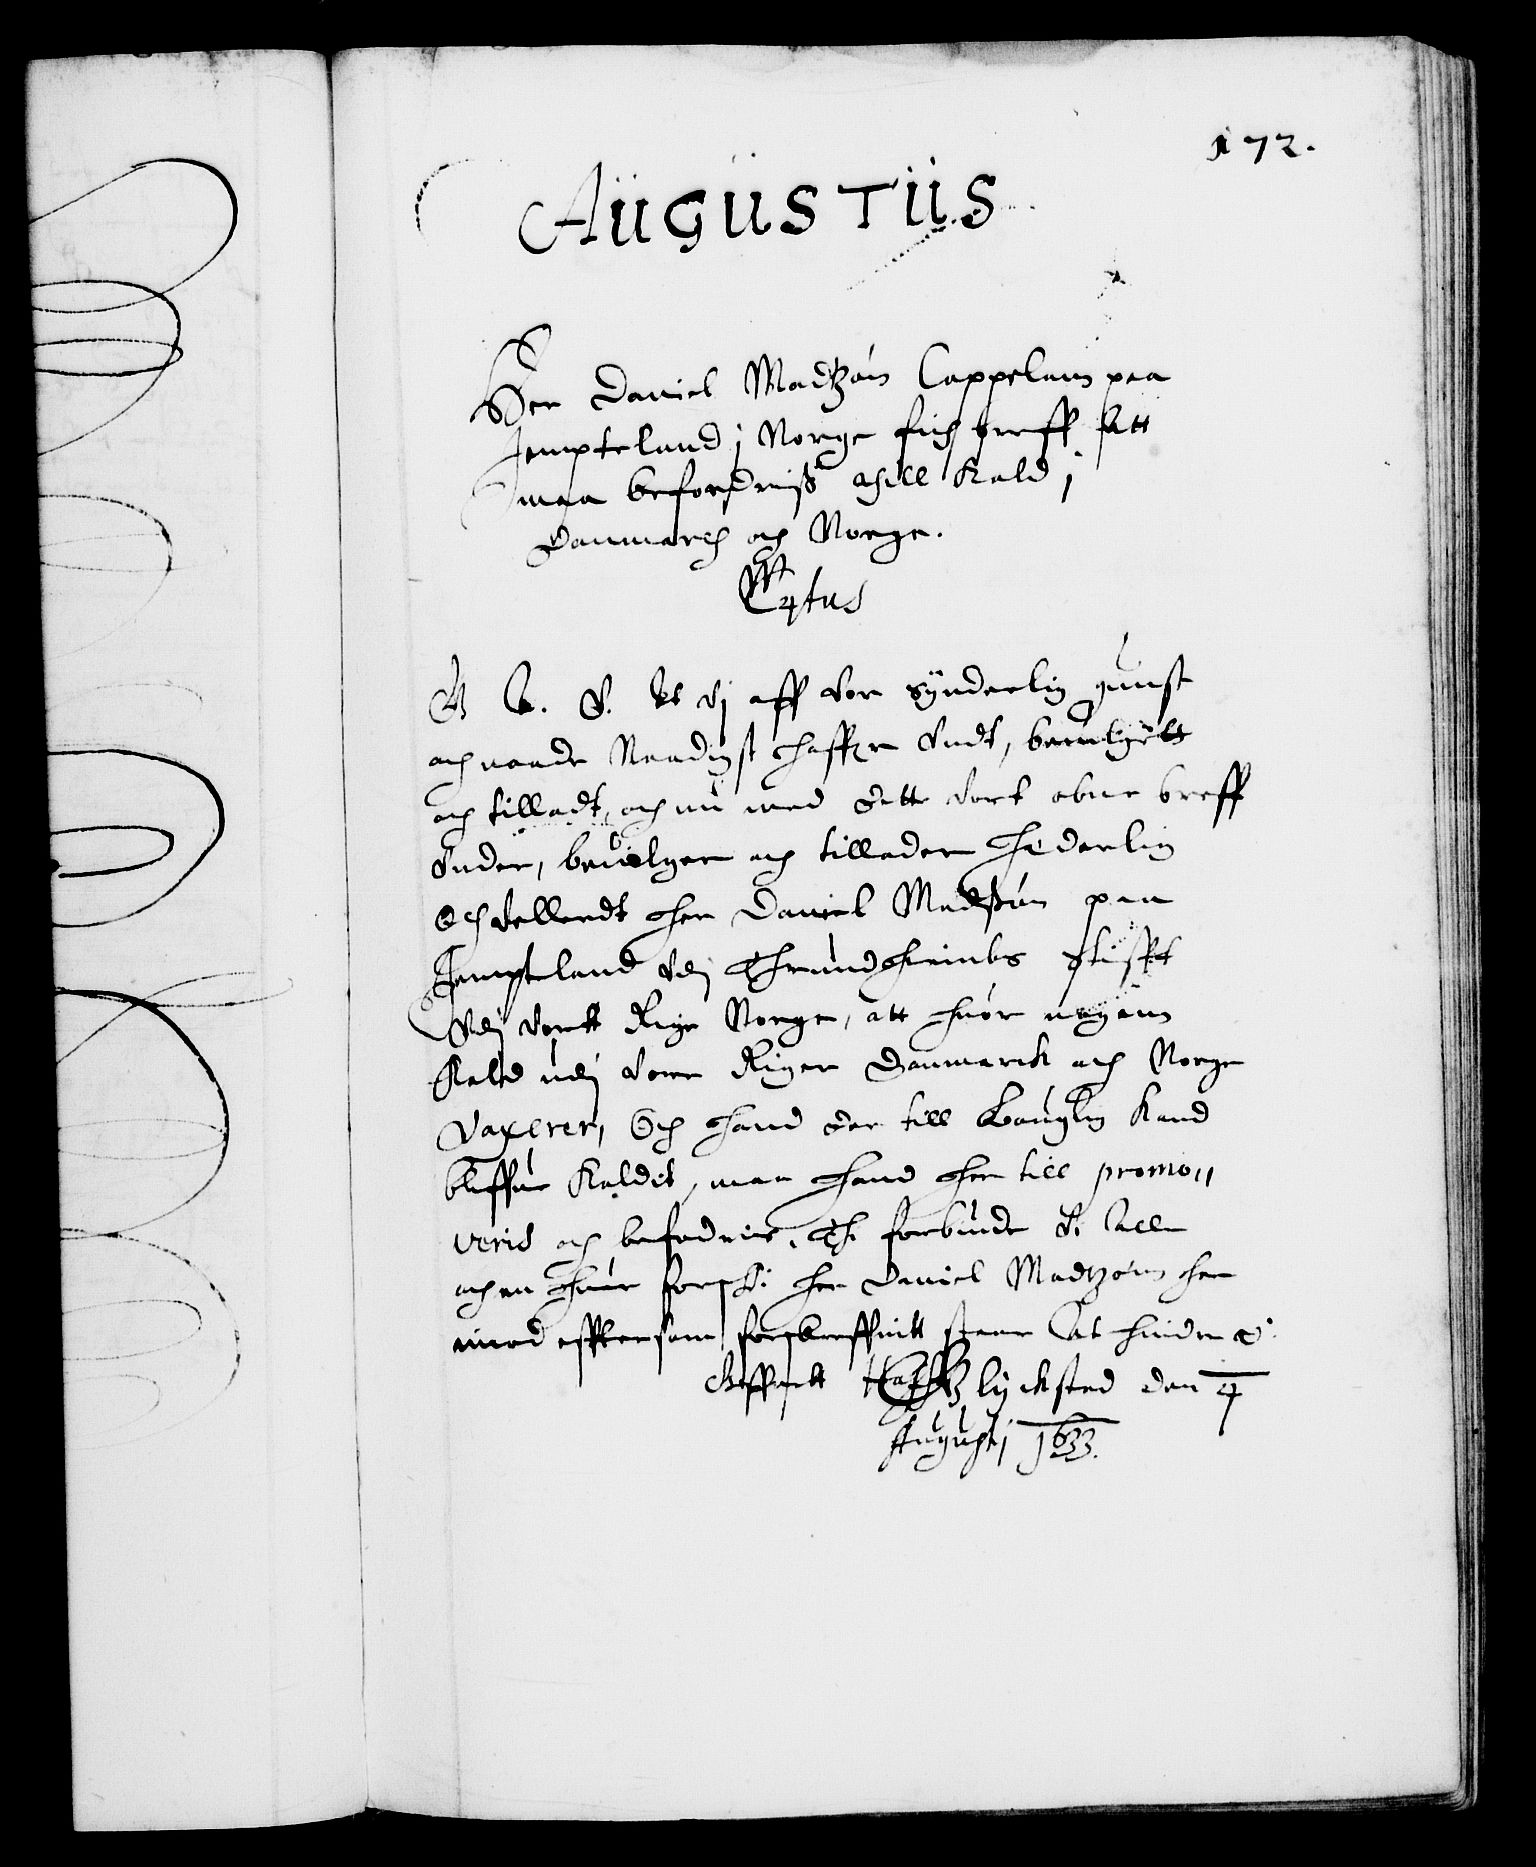 172.
AÜGÜSTÜS
Her Daniel Madtzøn Cappelann paa
Jempteland j Norge fich breff Att
maa befordriss thill Kald j
Danmarch och Norge.
C4tus
G. A. V. At Vj aff Vor synderlig gunst
och naade Naadigst haffuer Undt, beuilgett
och tilladt, och nu med dette Vort obne breff
Under, beuilger och tillader hederlig
Och Vellerdt her Daniel Madtzøn paa
Jempteland Udj Thrundhiembs Stifft
Udj Vortt Rige Norge, att huor nogenn
Kald udj Vore Riger Danmarck och Norge
Vaxerer, Och hand der till Louglig Kand
bliffue Kaldit, maa hand her till promo„
veris och befordris. Thi forbiude Vi Alle
och en huer forskr: her Daniel Madtzønn her
imod eftersom forskreffuitt staar At hindre &.
Giffuitt Glycksted den 4
Augustj 1633.